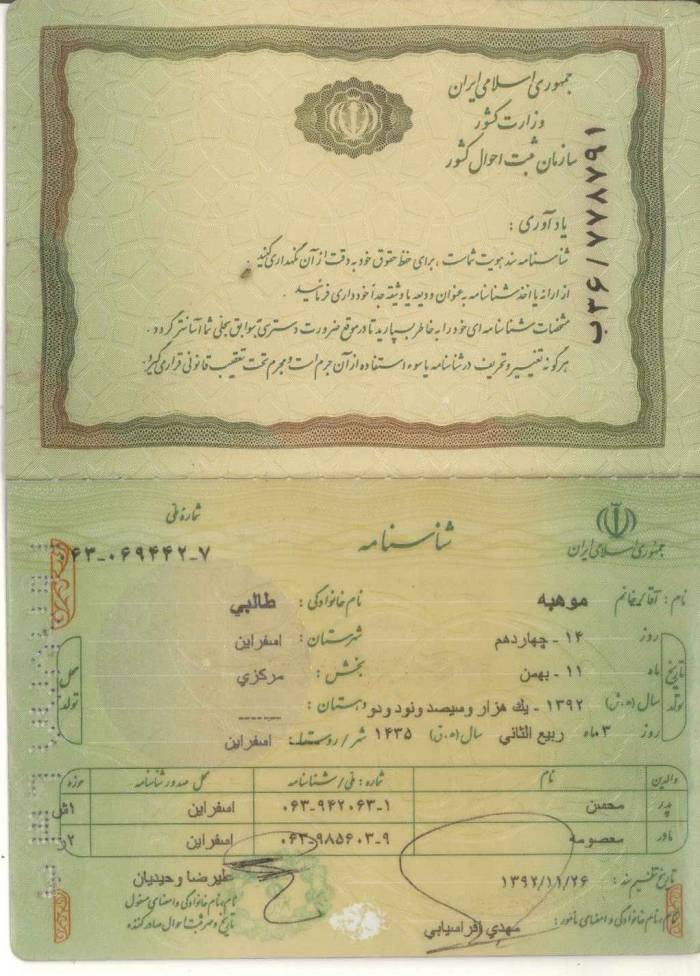 جمهوری اسلامی ایران
وزارت کشور
سازمان ثبت احوال کشور
ب۳۶/۷۷۸۷۹۱
یادآوری :
شناسنامه سند هویت شماست ، برای حفظ حقوق خود به دقت از آن نگهداری کنید .
از ارائه یا اخذ شناسنامه به عنوان ودیعه یا وثیقه جداً خودداری فرمائید .
مشخصات شناسنامه ای خود را به خاطر بسپارید تا در موقع ضرورت دسترسی به سوابق سجلی شما آسانتر گردد .
هرگونه تغییر و تحریف در شناسنامه یا سوء استفاده از آن جرم است و مجرم تحت تعقیب قانونی قرار می گیرد .
جمهوری اسلامی ایران
شناسنامه
شماره ملی
۰۶۳-۰۶۹۴۴۲-۷
نام : آقا/خانم موهبه نام خانوادگی : طالبي
تاریخ تولد
روز ۱۴ - چهاردهم شهرستان : اسفراين
ماه ۱۱ - بهمن بخش : مركزي
سال (ه.ش) ۱۳۹۲ - يك هزار و سيصد و نود و دو دهستان : ------
روز ۳ ماه ربيع الثاني سال (ه.ق) ۱۴۳۵ شهر/روستا : اسفراين
محل تولد
والدین نام شماره : ملی/شناسنامه محل صدور شناسنامه حوزه
پدر محسن ۰۶۳-۹۴۲۰۶۳-۱ اسفراين ۱ش
مادر معصومه ۰۶۳-۹۸۵۶۰۳-۹ اسفراين ۲ر
تاریخ تنظیم سند : ۱۳۹۲/۱۱/۲۶
عليرضا وحيديان
نام، نام خانوادگی و امضای مأمور : مهدي افراسيابي
نام، نام خانوادگی و امضای مسئول
تاریخ و مهر ثبت احوال صادر کننده